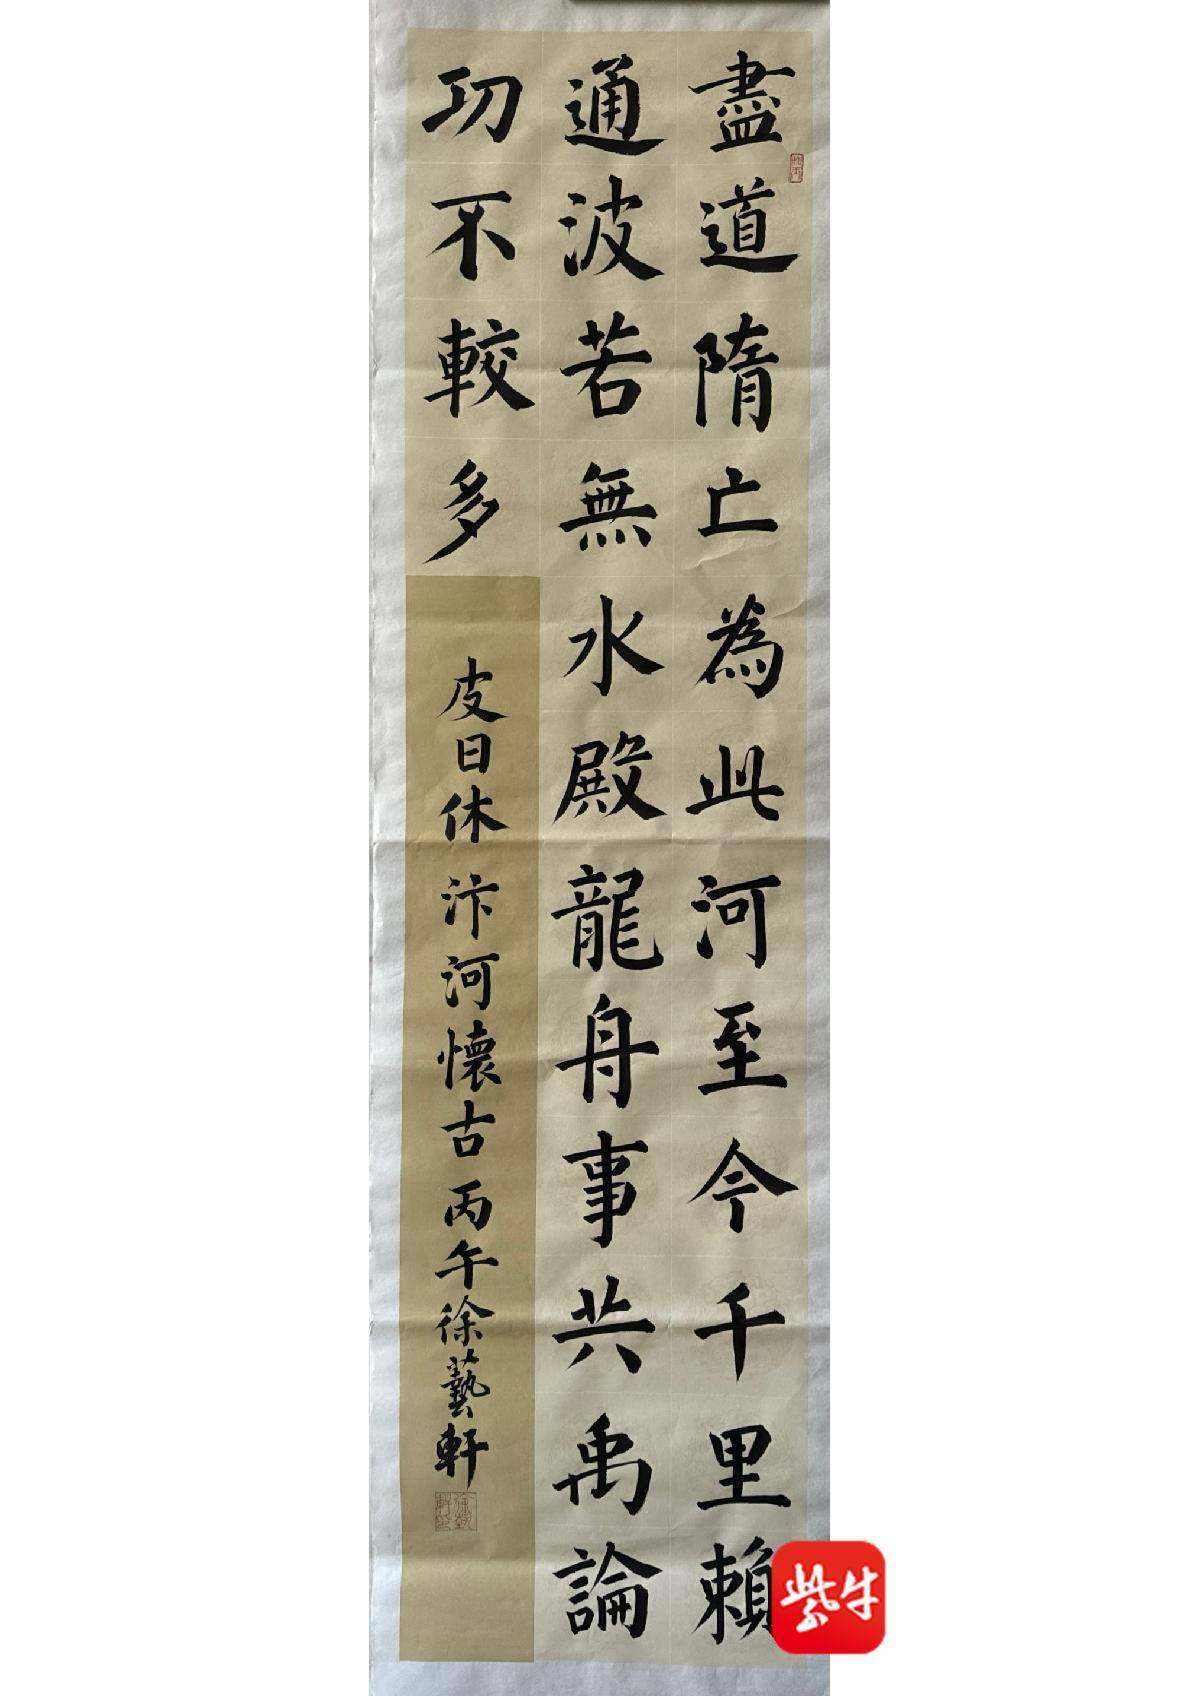 盡道隋亡為此河至今千里賴
通波若無水殿龍舟事共禹論
功不較多
皮日休汴河懷古丙午徐藝軒
徐藝軒印
紫牛